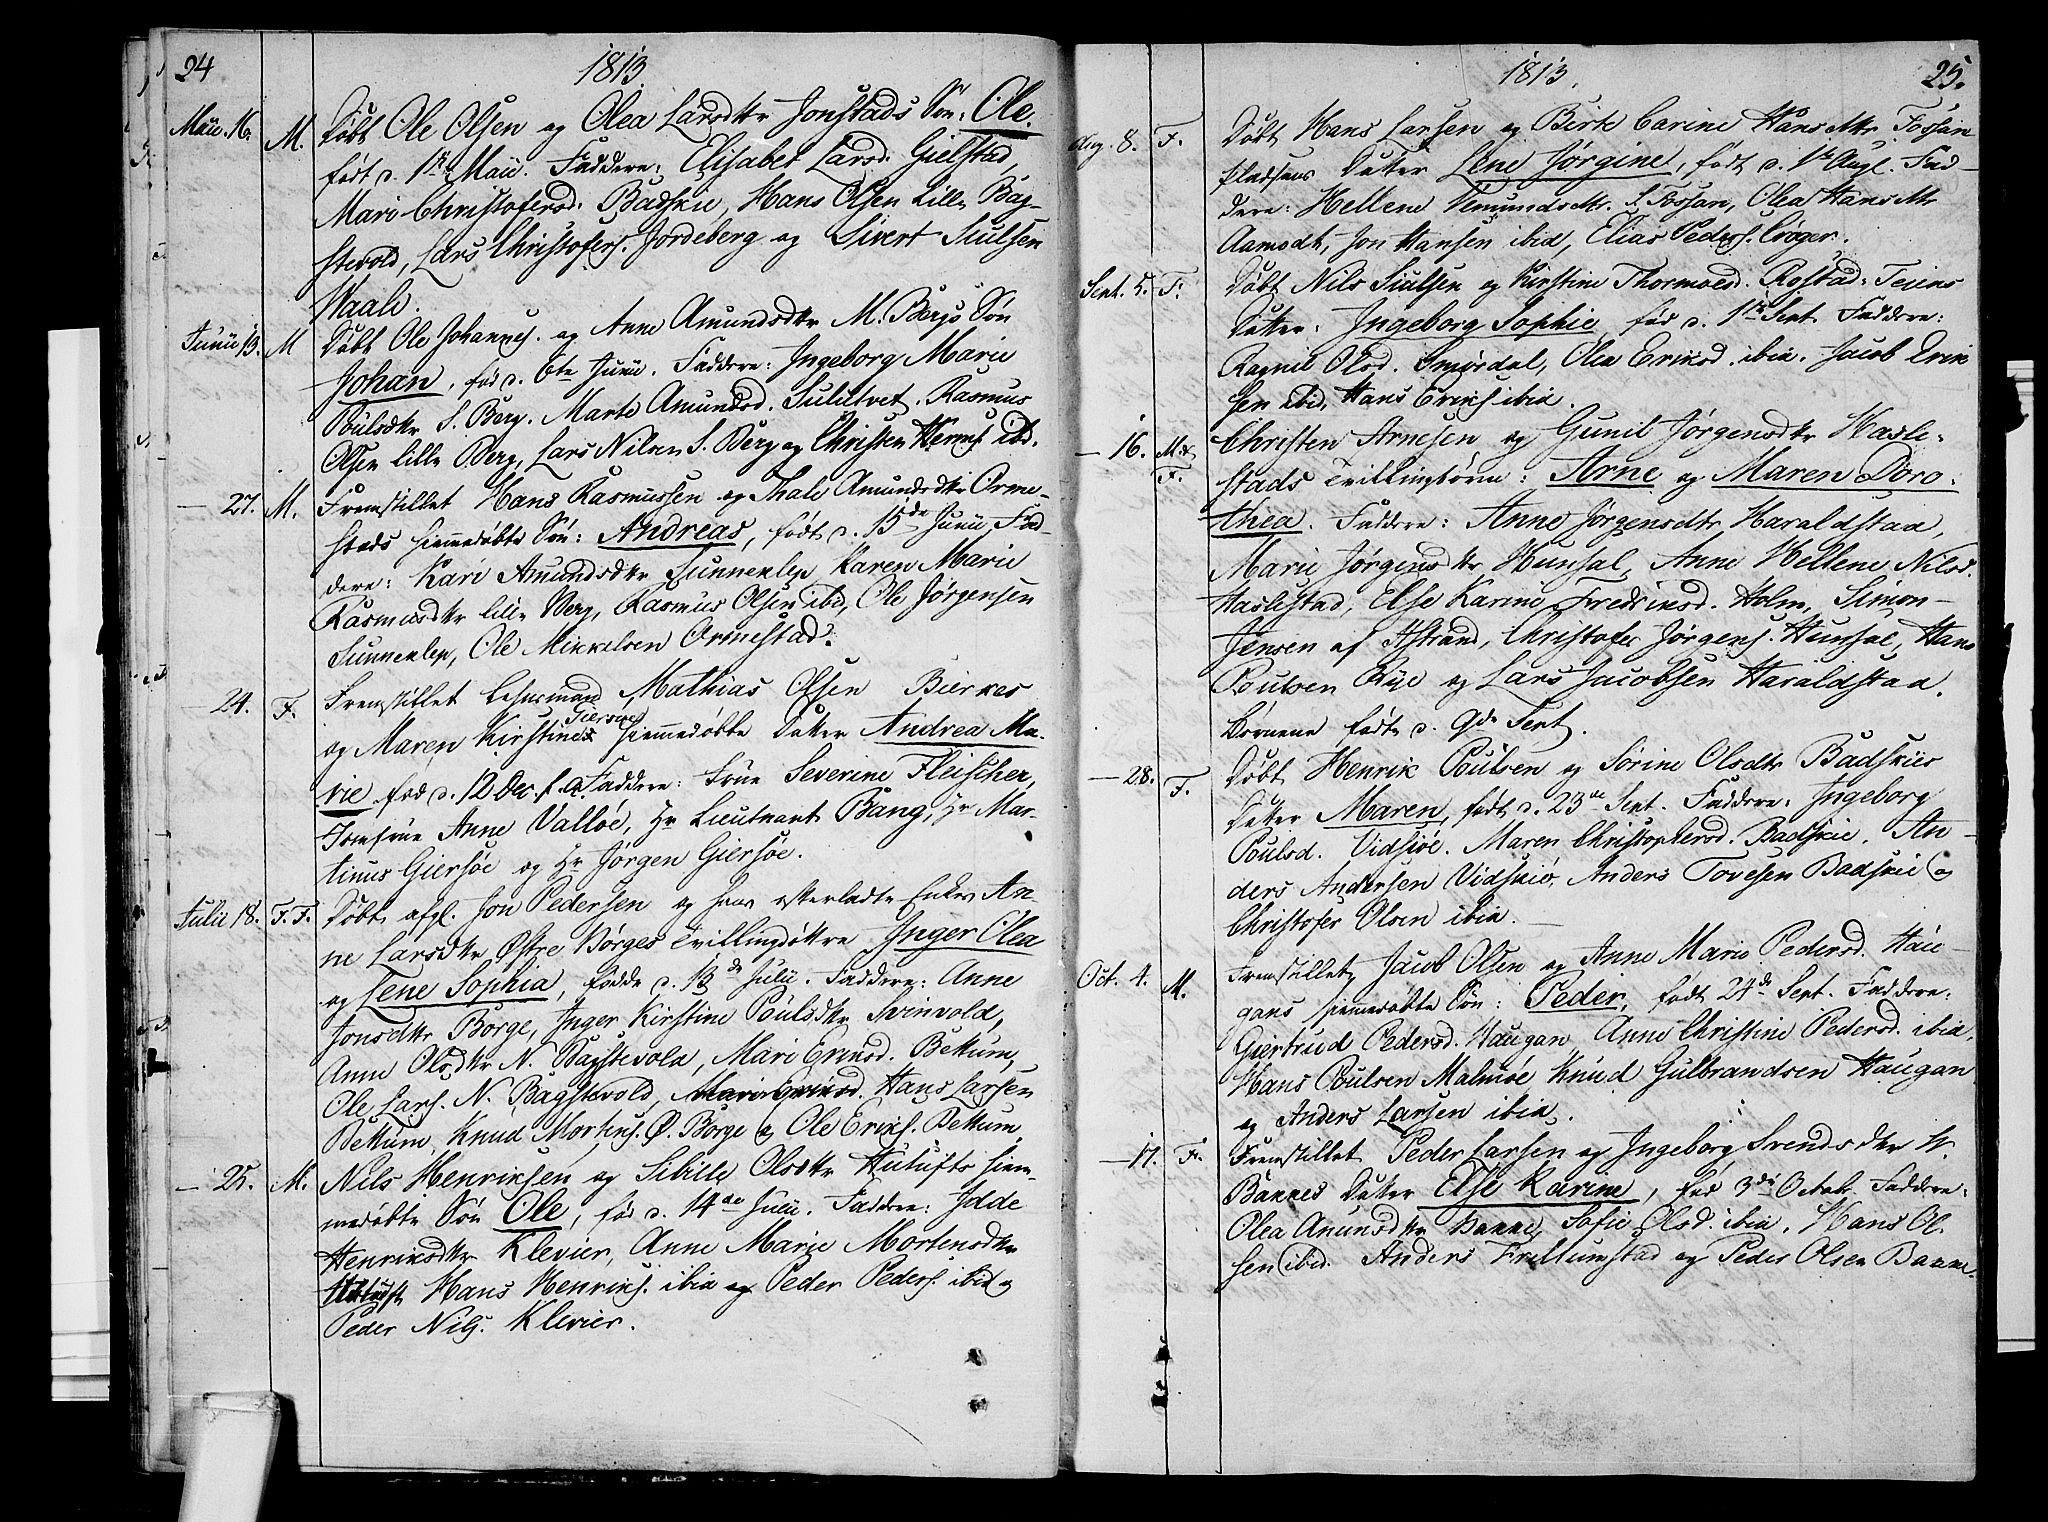 24
1813
Maii. 16. M. Døbt Ole Olsen og Olea Larsdtr Jonstads Søn: Ole.
født d. 1ste Maii. Faddere: Elisabet Larsd. Gielstad,
Mari Christofersd. Badskie, Hans Olsen Lille Bag-
stevold, Lars Christofers. Jordeberg og Sivert Siulsen
Waale.
Junii 13. M Døbt Ole Johannes. og Anne Amundsdtr M. Bergs Søn
Johan, fød d. 6te Junii. Faddere: Ingeborg Marie
Poulsdtr S. Berg. Marte Amundsd. Rasmus
Olsen Lille Berg, Lars Nilsen S. Berg og Christen ibd.
- 27. M. Fremstillet Hans Rasmussen og Thale Amundsdtr Orme-
stads hiemmedøbte Søn: Andreas, født d. 15de Junii Fad-
dere: Kari Amundsdtr Sunnenlep Karen Marie
Rasmusdtr Lille Berg, Rasmus Olsen ibid, Ole Jørgensen
Sunnenlep, Ole Mikkelsen Ormestad.
- 24. F. Fremstillet Lehnsmand Mathias Olsen Bierkes
og Maren Kirstine Giersøes hiemmedøbte Datter Andrea Ma-
rie fød d. 12 Dec. f. a. Faddere: Frue Severine Fleischer,
Jomfrue Anne Valløe, Hr Lieutnant Bang, Hr Mar-
tinus Giersøe og Hr Jørgen Giersøe.
Julii 18. F. F. Døbt afgl. Jon Pedersen og hans efterladte Enkes An-
ne Larsdtr Østre Børges Tvillingdøttre Inger Olea
og Lene Sophia, fødde d. 13de Julii. Faddere: Anne
Jonsdtr Børge, Inger Kirstine Poulsdtr Svinvold,
Anne Olsdtr N. Bagstevold, Mari Eriksd. Bettum,
Ole Lars. N. Bagstevold, Hans Larsen
Bettum, Knud Mortens. Ø. Børge og Ole Eriks. Bettum
- 25. M. Nils Henriksen og Sibille Olsdtr Hulufts hiem-
medøbte Søn Ole, fød d. 14de Julii. Faddere: Idde
Henriksdtr Klevier, Anne Marie Mortensdtr
Hans Henriks. ibid og Peder Peders. ibid og
Peder Nils. Klevier.
1813.
25.
Aug. 8. F. Døbt Hans Larsen og Birte Carine Hansdtr Fossan
pladsens Datter Lene Jørgine, født d. 1te Augl. Fad-
dere: Hellene Vemundsdtr. S. Fossan, Olea Hansdtr
Aamodt, Jon Hansen ibid, Elias Peders. Crøger.
Sept. 5. F. Døbt Nils Siulsen og Kirstine Thormoed. Rostad: Teiens
Datter: Ingeborg Sophie, fød d. 1ste Sept. Faddere:
Ragnil Olsd. Smørdal, Olea Eriksd. ibid. Jacob Erik
sen ibid, Hans Eriks ibid.
- 16. M. & F. Christen Arnesen og Gunil Jørgensdtr Hasle-
stads Tvillingbørn: Arne og Maren Doro-
thea. Faddere: Anne Jørgensdtr Haraldstad,
Marie Jørgensdtr Hunsal, Anne Hellene Nilsd.
Haslestad, Else Karine Fredriksd. Holm, Simon
Jensen af Astrand, Christofer Jørgens. Hunsal, Hans
Poulsen Rye og Lars Jacobsen Haraldstad.
Børnene fødte d. 9de Sept.
- 28. F. Døbt Henrik Poulsen og Sørine Olsdtr Badskies
Datter Maren, født d. 23de Sept. Faddere: Ingeborg
Poulsd. Vidsiøe. Maren Christophersd. Badskie, An-
ders Andersen Vidskiø, Anders Tovesen Badskie og
Christofer Olsen ibid.
Oct. 4. M. Fremstillet Jacob Olsen og Anne Marie Pedersd. Hau-
gans hiemmedøbte Søn: Peder, født 24de Sept. Faddere:
Giertrud Pedersd. Haugan Anne Christine Pedersd. ibid,
Hans Poulsen Malmøe, Knud Gulbrandsen Haugan
og Anders Larsen ibid.
- 17. F. Fremstillet Peder Larsen og Ingeborg Svendsdtr W.
Bannes Datter Else Karine, fød 3die Octob. Faddere:
Olea Anunsdtr Banne, Sofie Olsd. ibid, Hans Ol-
sen ibid. Anders Frellumstad og Peder Olsen Banne.